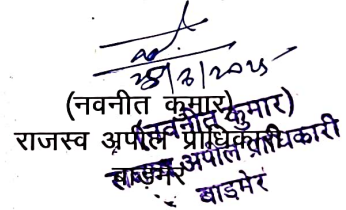 28/3/2025
(नवनीत कुमार)
राजस्व अपील प्राधिकारी
बाडमेर
(नवनीत कुमार)
राजस्व अपील प्राधिकारी
बाड़मेर